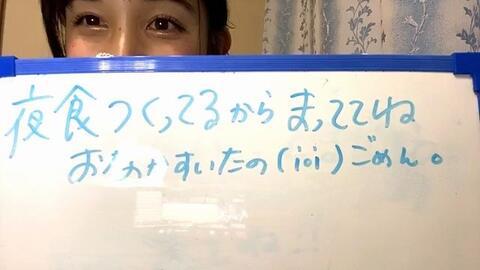 夜食つくってるからまっててね
おなかすいたの(;o;)ごめん。